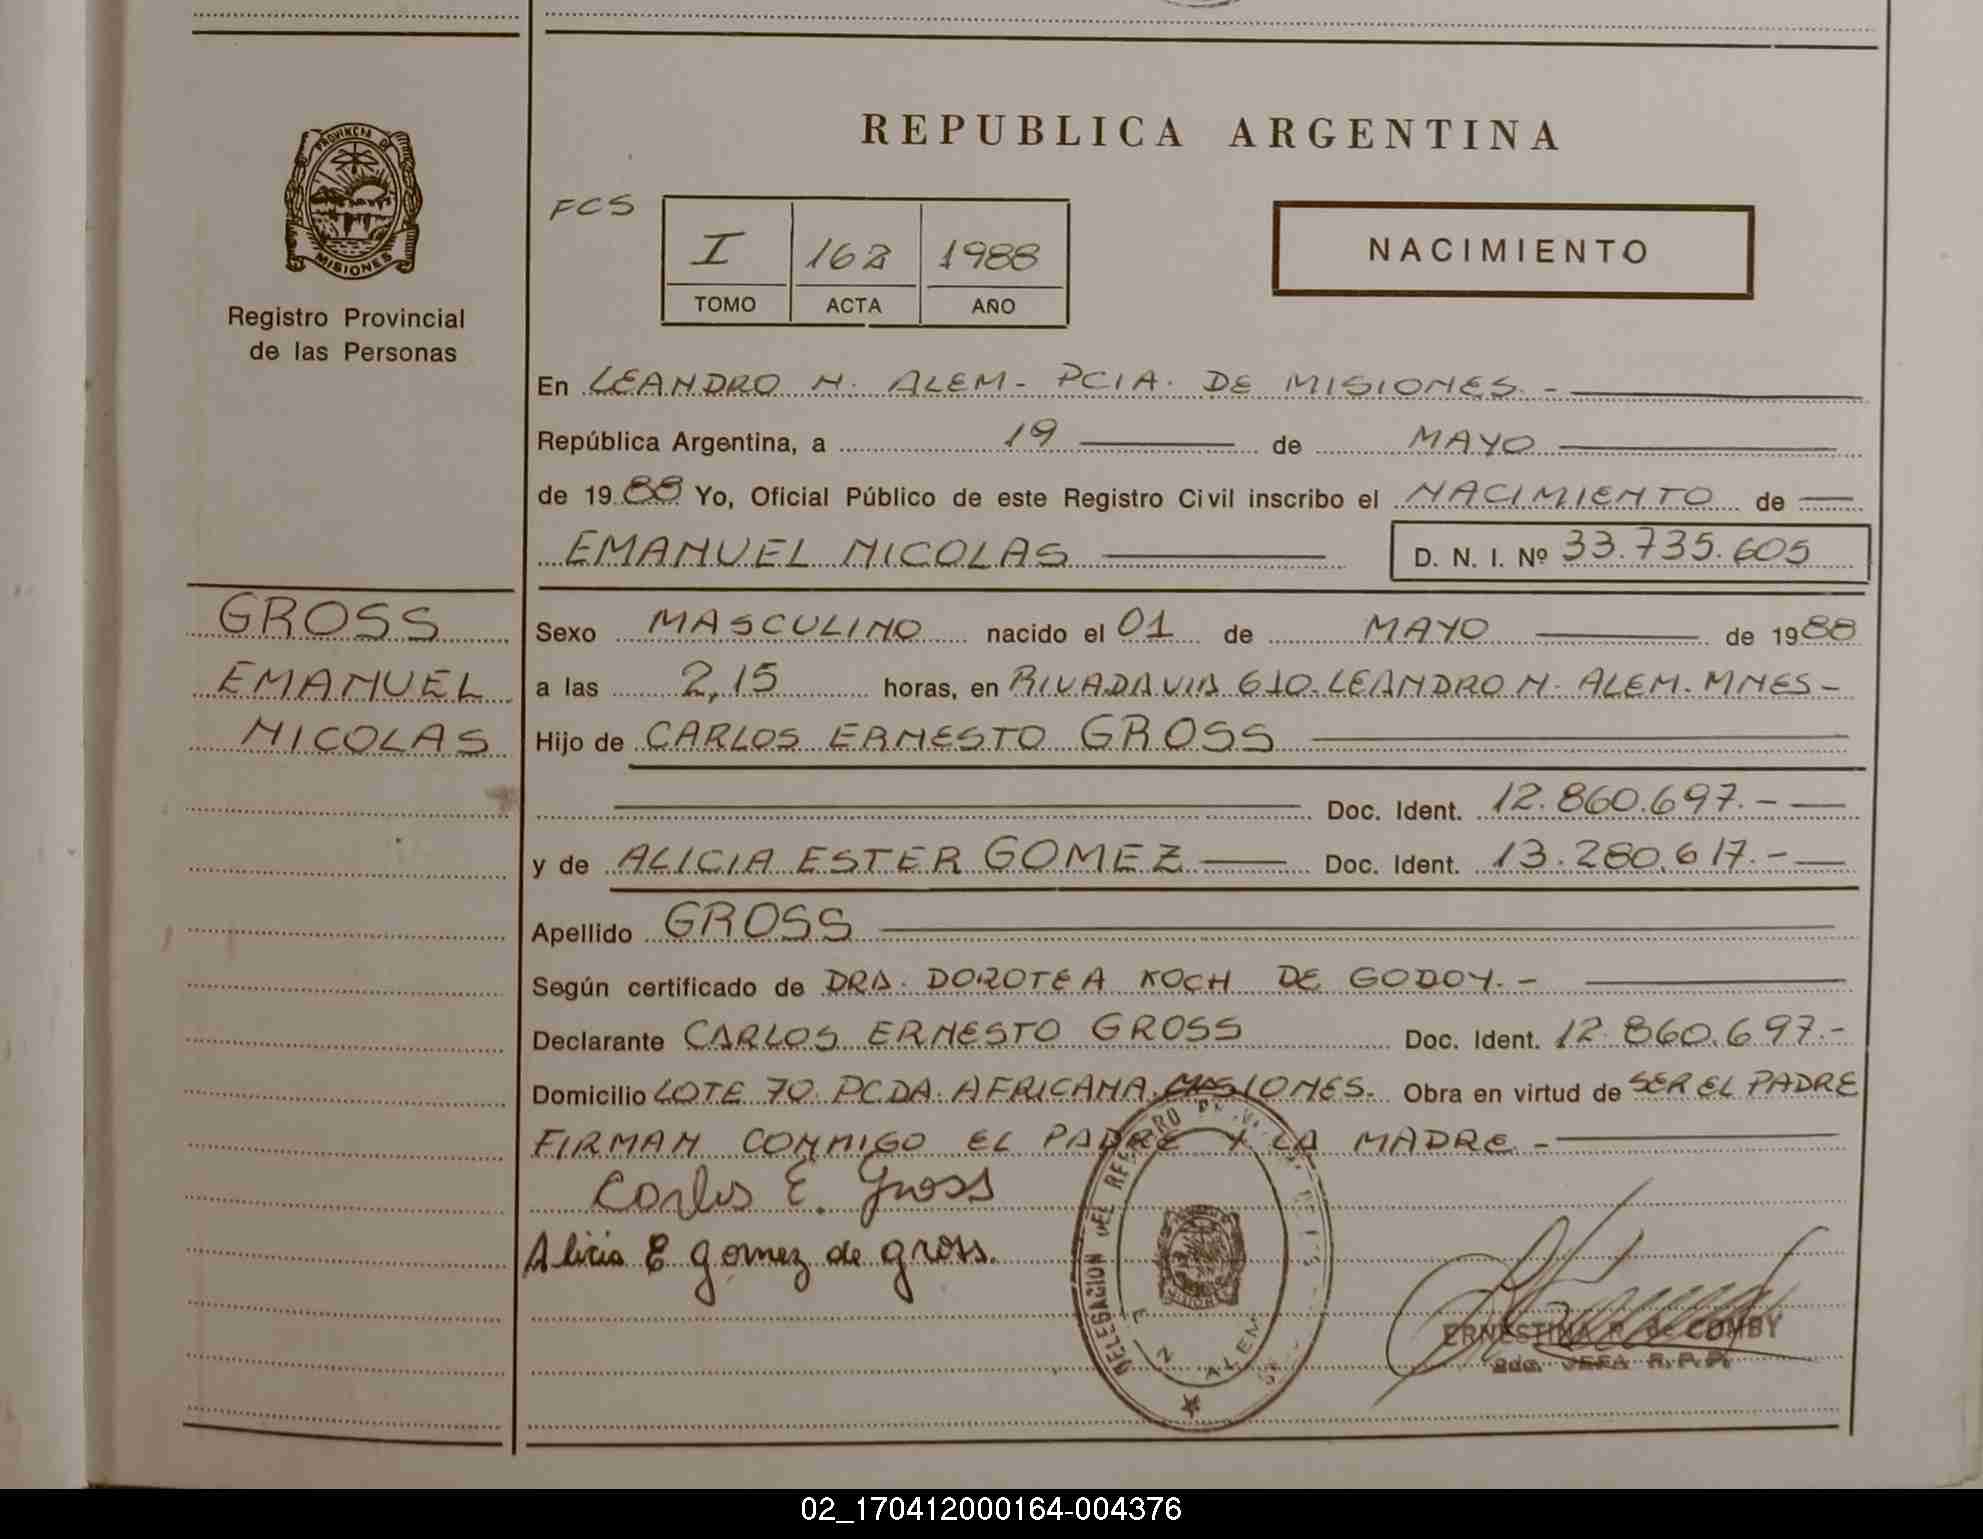 REPUBLICA ARGENTINA
PROVINCIA DE
MISIONES
Registro Provincial
de las Personas
FCS
I 162 1988
TOMO ACTA AÑO
NACIMIENTO
En LEANDRO N. ALEM - PCIA. DE MISIONES. -
República Argentina, a 19 de MAYO
de 1988 Yo, Oficial Público de este Registro Civil inscribo el NACIMIENTO de
EMANUEL NICOLAS D. N. I. Nº 33.735.605
GROSS
EMANUEL
NICOLAS
Sexo MASCULINO nacido el 01 de MAYO de 1988
a las 2,15 horas, en RIVADAVIA 610. LEANDRO N. ALEM. MNES-
Hijo de CARLOS ERNESTO GROSS
Doc. Ident. 12.860.697.-
y de ALICIA ESTER GOMEZ Doc. Ident. 13.280.617.-
Apellido GROSS
Según certificado de DRA. DOROTEA KOCH DE GODOY. -
Declarante CARLOS ERNESTO GROSS Doc. Ident. 12.860.697.-
Domicilio LOTE 70. PCDA. AFRICANA. MISIONES. Obra en virtud de SER EL PADRE
FIRMAN CONMIGO EL PADRE Y LA MADRE -
Carlos E. Gross
Alicia E Gomez de gross.
DELEGACION DEL REGISTRO
ALEM
ERNESTINA R. de COMBY
2da. JEFA R.P.P.
02_170412000164-004376